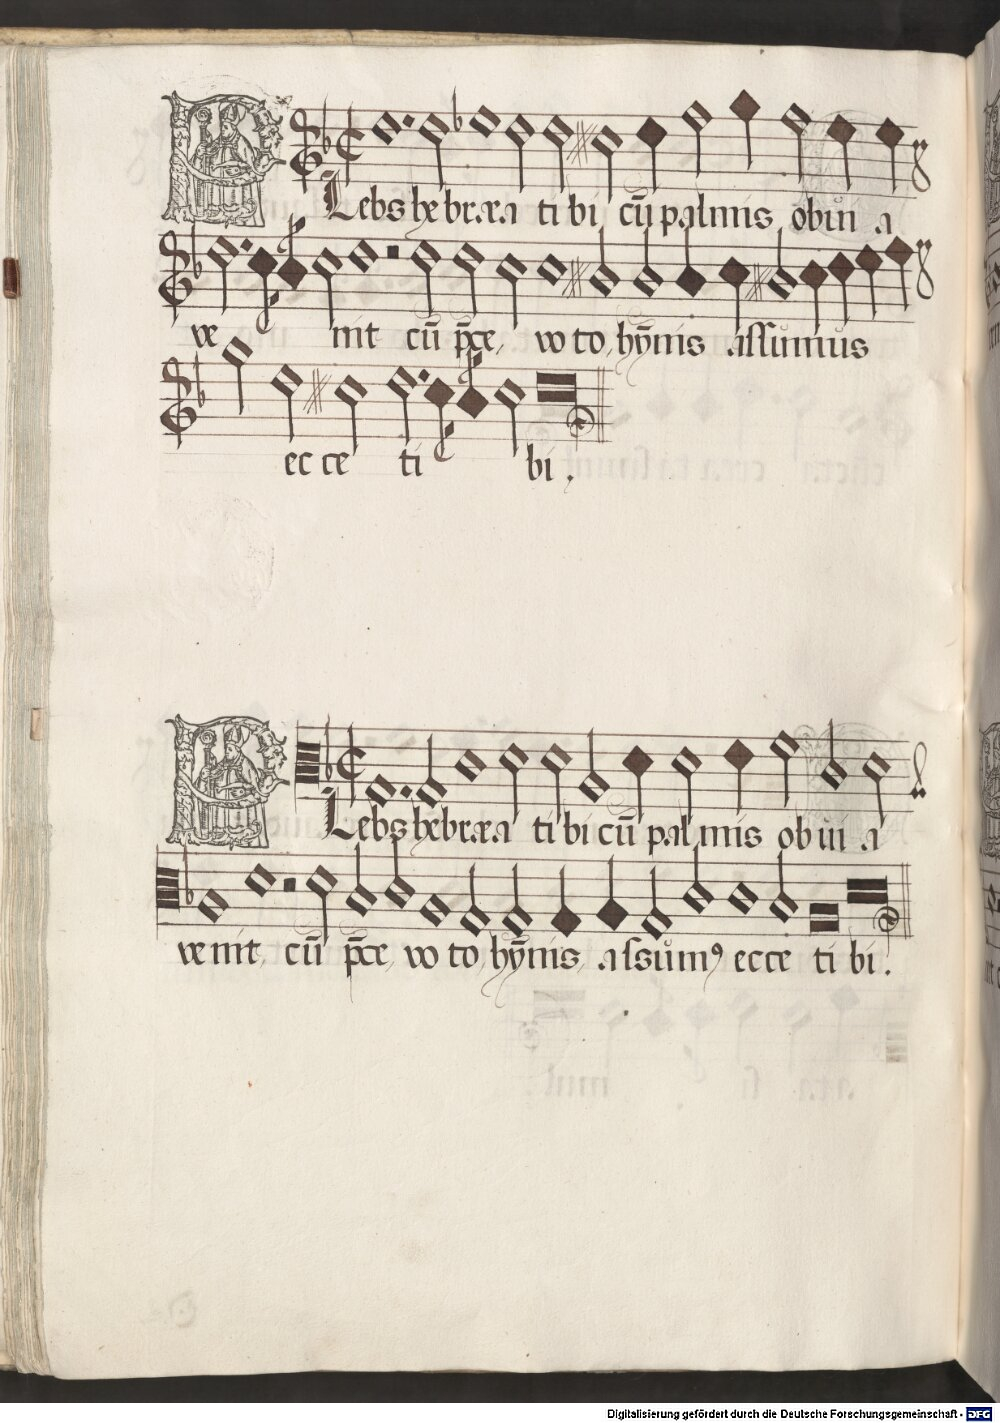 Plebs hebræa tibi cū palmis obuia
venit cū p̄ce, voto, hȳmis assumus
ecce tibi.
Plebs hebræa tibi cū palmis obuia
venit, cū p̄ce, voto, hȳmnis, assumꝰ ecce tibi.
Digitalisierung gefördert durch die Deutsche Forschungsgemeinschaft - DFG